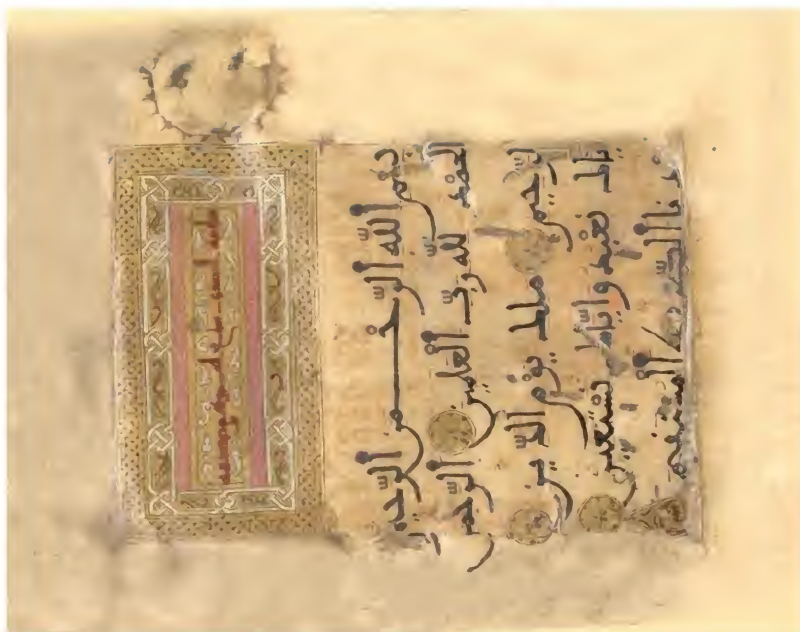 بسم الله الرحمن الرحيم
الحمد لله رب العلمين الرحمن
الرحيم ملك يوم الدين
اياك نعبد واياك نستعين
اهدنا الصرط المستقيم